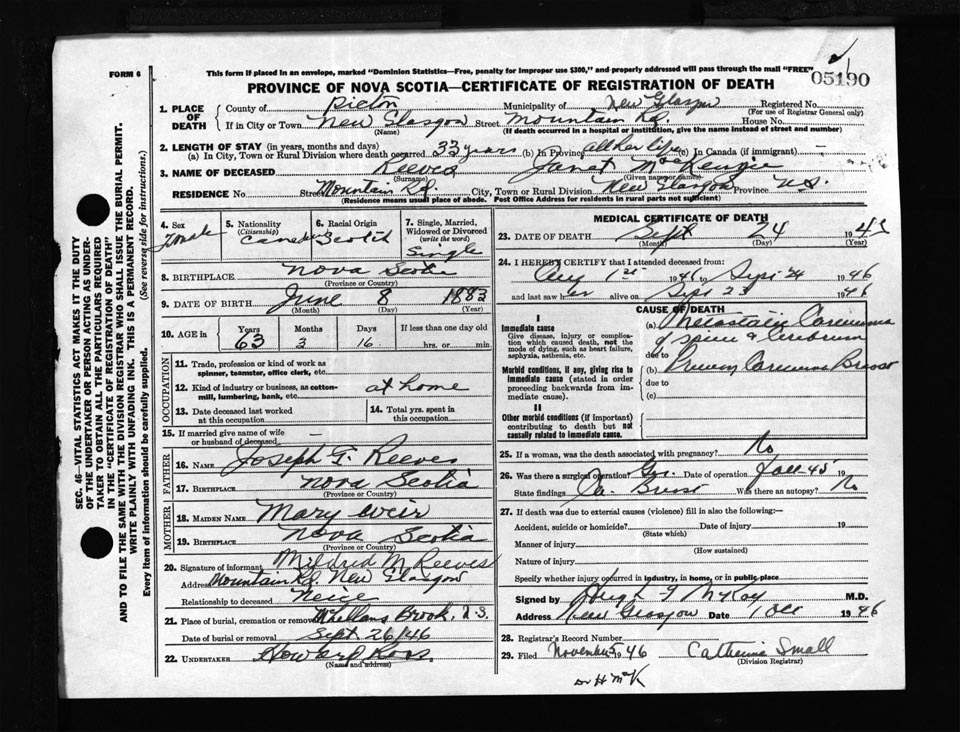 FORM 6
This form if placed in an envelope, marked "Dominion Statistics—Free, penalty for improper use $300," and properly addressed will pass through the mail "FREE"
05190
PROVINCE OF NOVA SCOTIA—CERTIFICATE OF REGISTRATION OF DEATH
1. PLACE OF DEATH County of Pictou Municipality of New Glasgow Registered No.
(For use of Registrar General only)
If in City or Town New Glasgow Street Mountain Rd. House No.
(Name) (If death occurred in a hospital or institution, give the name instead of street and number)
2. LENGTH OF STAY (in years, months and days)
(a) In City, Town or Rural Division where death occurred 33 years (b) In Province all her life (c) In Canada (if immigrant) —
3. NAME OF DECEASED Reeves Janet McKenzie
(Surname) (Given name or names)
RESIDENCE No. Street Mountain Rd. City, Town or Rural Division New Glasgow Province N.S.
(Residence means usual place of abode. Post Office Address for residents in rural parts not sufficient)
4. Sex Female
5. Nationality (Citizenship) Canadian
6. Racial Origin Scotch
7. Single, Married, Widowed or Divorced (write the word) Single
8. BIRTHPLACE Nova Scotia
(Province or Country)
9. DATE OF BIRTH June 8 1883
(Month) (Day) (Year)
10. AGE in Years Months Days If less than one day old
63 3 16 hrs. or min.
OCCUPATION
11. Trade, profession or kind of work as spinner, teamster, office clerk, etc.
12. Kind of industry or business, as cotton-mill, lumbering, bank, etc. at home
13. Date deceased last worked at this occupation
14. Total yrs. spent in this occupation
15. If married give name of wife or husband of deceased —
FATHER
16. NAME Joseph F. Reeves
17. BIRTHPLACE Nova Scotia
(Province or Country)
MOTHER
18. MAIDEN NAME Mary Weir
19. BIRTHPLACE Nova Scotia
(Province or Country)
20. Signature of informant Mildred M Reeves
Address Mountain Rd. New Glasgow
Relationship to deceased Neice
21. Place of burial, cremation or removal McLellans Brook, N.S.
Date of burial or removal Sept 26/46
22. UNDERTAKER Howard Ross
(Name and address)
MEDICAL CERTIFICATE OF DEATH
23. DATE OF DEATH Sept 24 19
(Month) (Day) (Year)
24. I HEREBY CERTIFY that I attended deceased from:
Aug 1st 1946 to Sept 24 1946
and last saw her alive on Sept 23 1946
CAUSE OF DEATH
I
Immediate cause
Give disease, injury or complication which caused death, not the mode of dying, such as heart failure, asphyxia, asthenia, etc.
(a) Metastatic Carcinoma
of spine & cerebrum
due to
Morbid conditions, if any, giving rise to immediate cause (stated in order proceeding backwards from immediate cause).
(b) Primary Carcinoma Breast
due to
(c)
II
Other morbid conditions (if important) contributing to death but not causally related to immediate cause.
25. If a woman, was the death associated with pregnancy? No
26. Was there a surgical operation? Yes. Date of operation Fall-45 19
State findings Ca. Breast Was there an autopsy? No
27. If death was due to external causes (violence) fill in also the following:—
Accident, suicide or homicide? Date of injury 19
(State which)
Manner of injury
(How sustained)
Nature of injury
Specify whether injury occurred in industry, in home, or in public place
Signed by Hugh F McKay M.D.
Address New Glasgow Date 1 Oct 1946
28. Registrar's Record Number
29. Filed November 5 1946 Catherine Small
(Division Registrar)
Dr H McK
SEC. 46—VITAL STATISTICS ACT MAKES IT THE DUTY
OF THE UNDERTAKER OR PERSON ACTING AS UNDER-
TAKER TO OBTAIN ALL THE PARTICULARS REQUIRED
IN THE "CERTIFICATE OF REGISTRATION OF DEATH"
AND TO FILE THE SAME WITH THE DIVISION REGISTRAR WHO SHALL ISSUE THE BURIAL PERMIT.
WRITE PLAINLY WITH UNFADING INK. THIS IS A PERMANENT RECORD.
Every item of information should be carefully supplied. (See reverse side for instructions.)